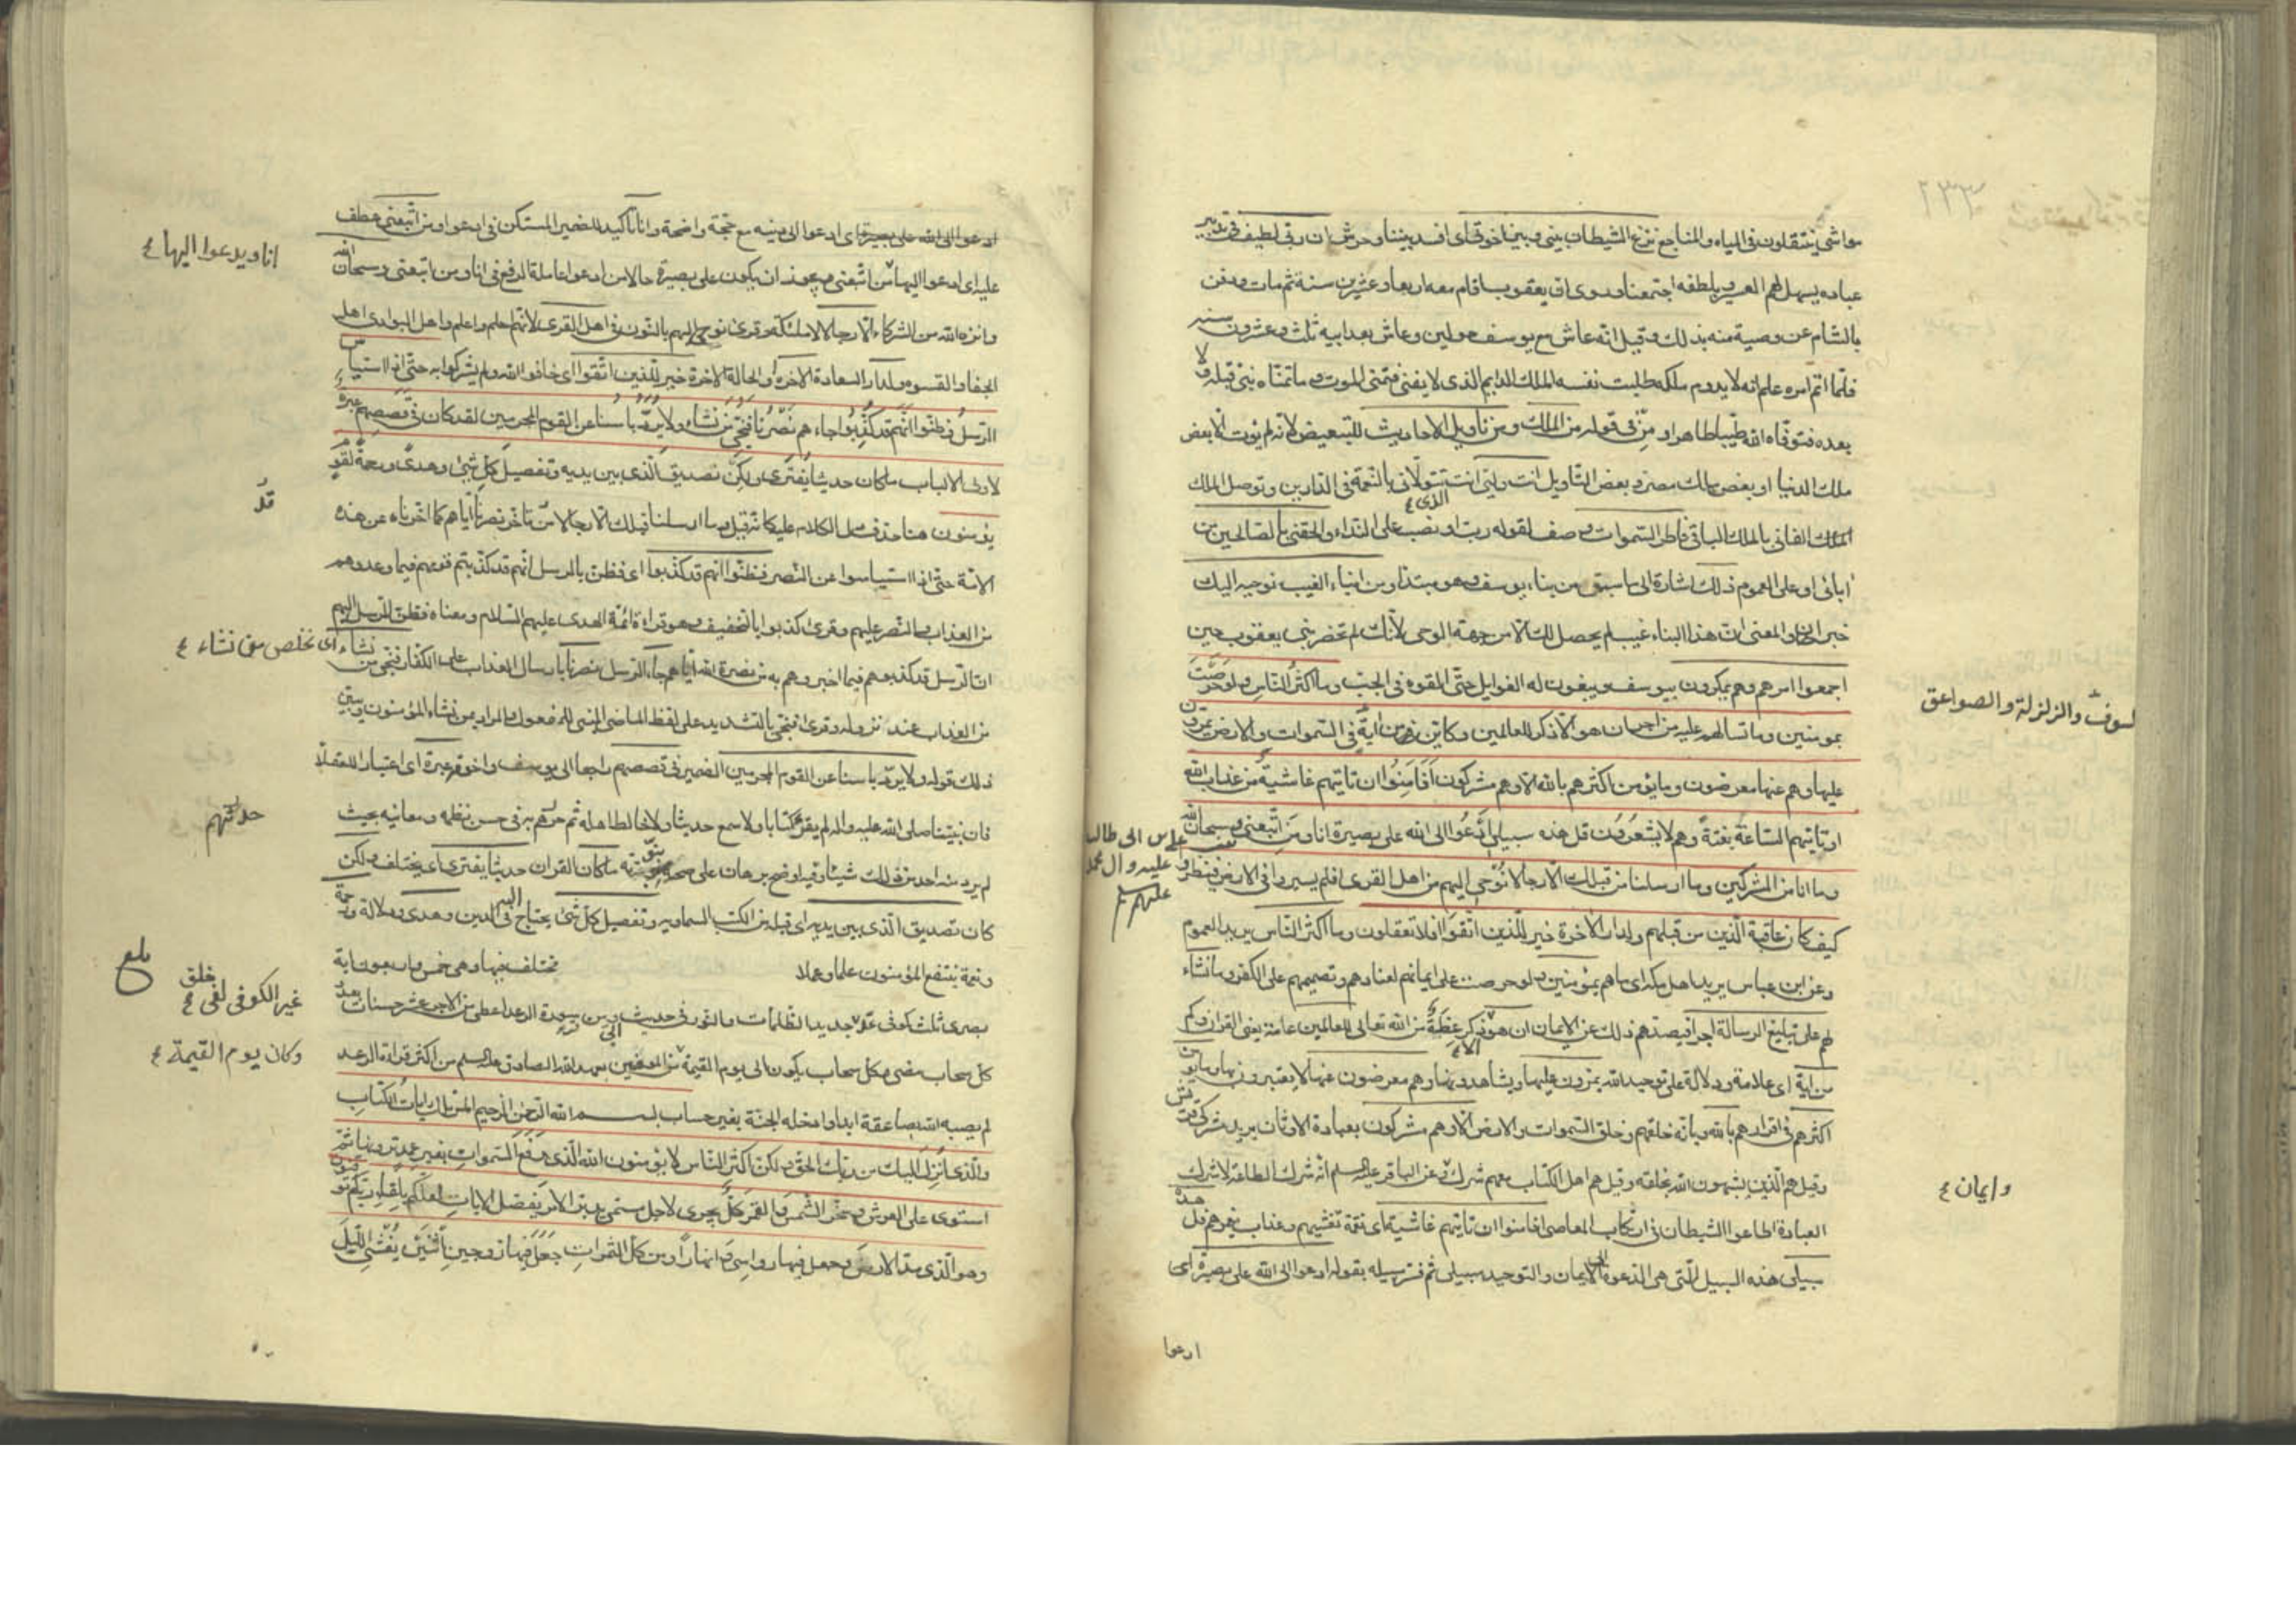 مواشي ينتقلون في المياه والمناجع نزغ الشيطان بيني وبين اخوتي اي افسد بيننا وحرش ان ربي لطيف في تدبير
عباده يسهل لهم العسير وبلطفه اجتمعنا وروى ان يعقوب اقام معه اربعا وعشرين سنة ثم مات ودفن
بالشام عن وصية منه بذلك وقيل انه عاش مع يوسف حولين وعاش بعد ابيه ثلث وعشرون سنه
فلما اتم امره علم انه لا يدوم ملكه طلبت نفسه الملك الدايم الذى لا يفنى فتمنى الموت وما تمناه نبى قبله ولا
بعده فتوفاه الله طيبا طاهرا و من في قوله من الملك ومن تاويل الاحاديث للتبعيض لانه لم يؤت الا بعض
ملك الدنيا او بعض ملك مصر و بعض التاويل انت وليي انت الذى تتولانى بالنعمة في الدارين وتوصل الملك
الملك الفاني بالملك الباقي فاطر السموات وصف لقوله رب او نصب على النداء والحقني بالصالحين من
ابائى او على العموم ذلك اشارة الى ما سبق من نباء يوسف وهو مبتدا ومن انباء الغيب نوحيه اليك
خبران والمعنى ان هذا النباء غيب لم يحصل لك الا من جهة الوحى لانك لم تحضر بنى يعقوب حين
اجمعوا امرهم وهم يمكرون بيوسف ويبغون له الغوايل حتى القوه في الجب وما اكثر الناس ولو حرصت
بمومنين وما تسالهم عليه من اجر ان هو الا ذكر للعالمين وكاين من اية في السموات والارض يمرون
عليها وهم عنها معرضون وما يؤمن اكثرهم بالله الا وهم مشركون افامنوا ان تاتيهم غاشية من عذاب الله
او تاتيهم الساعة بغتة وهم لا يشعرون قل هذه سبيلى ادعوا الى الله على بصيرة انا ومن اتبعنى وسبحان الله
وما انا من المشركين وما ارسلنا من قبلك الا رجالا نوحى اليهم من اهل القرى افلم يسيروا في الارض فينظروا
كيف كان عاقبة الذين من قبلهم ولدار الاخرة خير للذين اتقوا افلا تعقلون وما اكثر الناس يريد العموم
وعن ابن عباس يريد اهل مكة اى ما هم بمومنين ولو حرصت على ايمانهم لعنادهم وتصميمهم على الكفر وما تسئلهم
لهم على تبليغ الرسالة اجرا فيصدهم ذلك عن الايمان ان هو الا ذكر عظة من الله تعالى للعالمين عامة يعنى القران وكم
من اية اى علامة ودلالة على توحيد الله يمرون عليها ويشاهدونها وهم معرضون عنها لا يعتبرون بها وما يؤمن
اكثرهم في اقرارهم بالله وبانه خلقهم وخلق السموات والارض الا وهم مشركون بعبادة الاوثان يريد مشركى قريش
وقيل هم الذين يشبهون الله بخلقه وقيل هم اهل الكتاب معهم شرك وعن الباقر عليه السلم انه شرك الطاعة لا شرك
العبادة اطاعوا الشيطان في ارتكاب المعاصى افامنوا ان تاتيهم غاشية اى نقمة تغشيهم وعذاب يغمرهم قل هذه
سبيلى هذه السبيل التى هى الدعوة الى الايمان والتوحيد سبيلى ثم فسر سبيله بقوله ادعوا الى الله على بصيرة اى
ادعوا
لسوف والزلزلة والصواعق
على بن ابى طالب
عليه وال محمد
عليهم
وايمان ع
ادعوا الى الله على بصيرة اى ادعوا الى دينه مع حجة واضحة وانا تاكيد للضمير المستكن في ادعوا ومن اتبعنى عطف
عليه اى ادعوا اليها من اتبعنى ويجوز ان يكون على بصيرة حالا من ادعوا عاملة الرفع في انا ومن اتبعنى وسبحان الله
وانزه الله من الشركاء الا رجالا لا ملئكة وقرئ نوحى اليهم بالنون من اهل القرى لانهم احلم واعلم واهل البوادى اهل
الجفا والقسوه ولدار الساعة الاخرة او الحالة الاخرة خير للذين اتقوا اى خافوا الله ولم يشركوا به حتى اذا استياس
الرسل وظنوا انهم قد كذبوا جاءهم نصرنا فنجى من نشاء ولا يرد باسنا عن القوم المجرمين لقد كان في قصصهم عبرة
لاولى الالباب ما كان حديثا يفترى ولكن تصديق الذى بين يديه وتفصيل كل شئ وهدى ورحمة لقوم
يؤمنون هنا حذف دل الكلام عليه كانه قيل وما ارسلنا قبلك الا رجالا من تاخر نصرنا اياهم كما اخرناه عن هذه
الامة حتى اذا استياسوا عن النصر فظنوا انهم قد كذبوا اى فظن بالرسل انهم قد كذبتهم قومهم فيما وعدوهم
من العذاب والنصر عليهم وقرئ كذبوا بالتخفيف وهو قراءة ائمة الهدى عليهم السلام ومعناه فظن المرسل اليهم
ان الرسل قد كذبوهم فيما اخبروهم به من نصرة الله اياهم جاء الرسل نصرنا بارسال العذاب على الكفار فنجى من نشاء اى نخلص من نشاء ع
من العذاب عند نزوله وقرئ فنجى بالتشديد على لفظ الماضى المبنى للمفعول والمراد بمن نشاء المؤمنون وبين
ذلك قوله ولا يرد باسنا عن القوم المجرمين الضمير في قصصهم راجعا الى يوسف واخوته عبرة اى اعتبار للعقلا
فان نبينا صلى الله عليه واله لم يقرء كتابا ولا سمع حديثا ولا خالط اهله ثم حدثهم به في حسن نظمه ومعانيه بحيث
لم يرد منه احد من ذلك شيئا وفيه اوضح برهان على صحة نبوته ما كان القران حديثا يفترى اى يختلف ولكن
كان تصديق الذى بين يديه اى قبله من الكتب السماويه وتفصيل كل شئ يحتاج اليه في الدين وهدى ودلالة ورحمة
ونعمة ينتفع المؤمنون علما وعملا تختلف فيها وهى خمس واربعون اية
بصرى ثلث كوفى عد جديد الظلمات والنور في حديث ابى ومن سورة الرعد اعطى من الاجر عشر حسنات بعدد
كل سحاب مضى وكل سحاب يكون الى يوم القيمة من الموفين بعهد الله الصادق عليه السلم من اكثر قراءة الرعد
لم يصبه الله بصاعقة ابدا وادخله الجنة بغير حساب بسم الله الرحمن الرحيم المر تلك ايات الكتاب
والذى انزل اليك من ربك الحق ولكن اكثر الناس لا يؤمنون الله الذى رفع السموات بغير عمد ترونها ثم
استوى على العرش وسخر الشمس والقمر كل يجرى لاجل مسمى يدبر الامر يفصل الايات لعلكم بلقاء ربكم توقنون
وهو الذى مد الارض وجعل فيها رواسى وانهارا ومن كل الثمرات جعل فيها زوجين اثنين يغشى الليل
انا ويدعوا اليها ع
حدثهم
بلغ
خلق
غير الكوفى لفى ع
وكان يوم القيمة ع